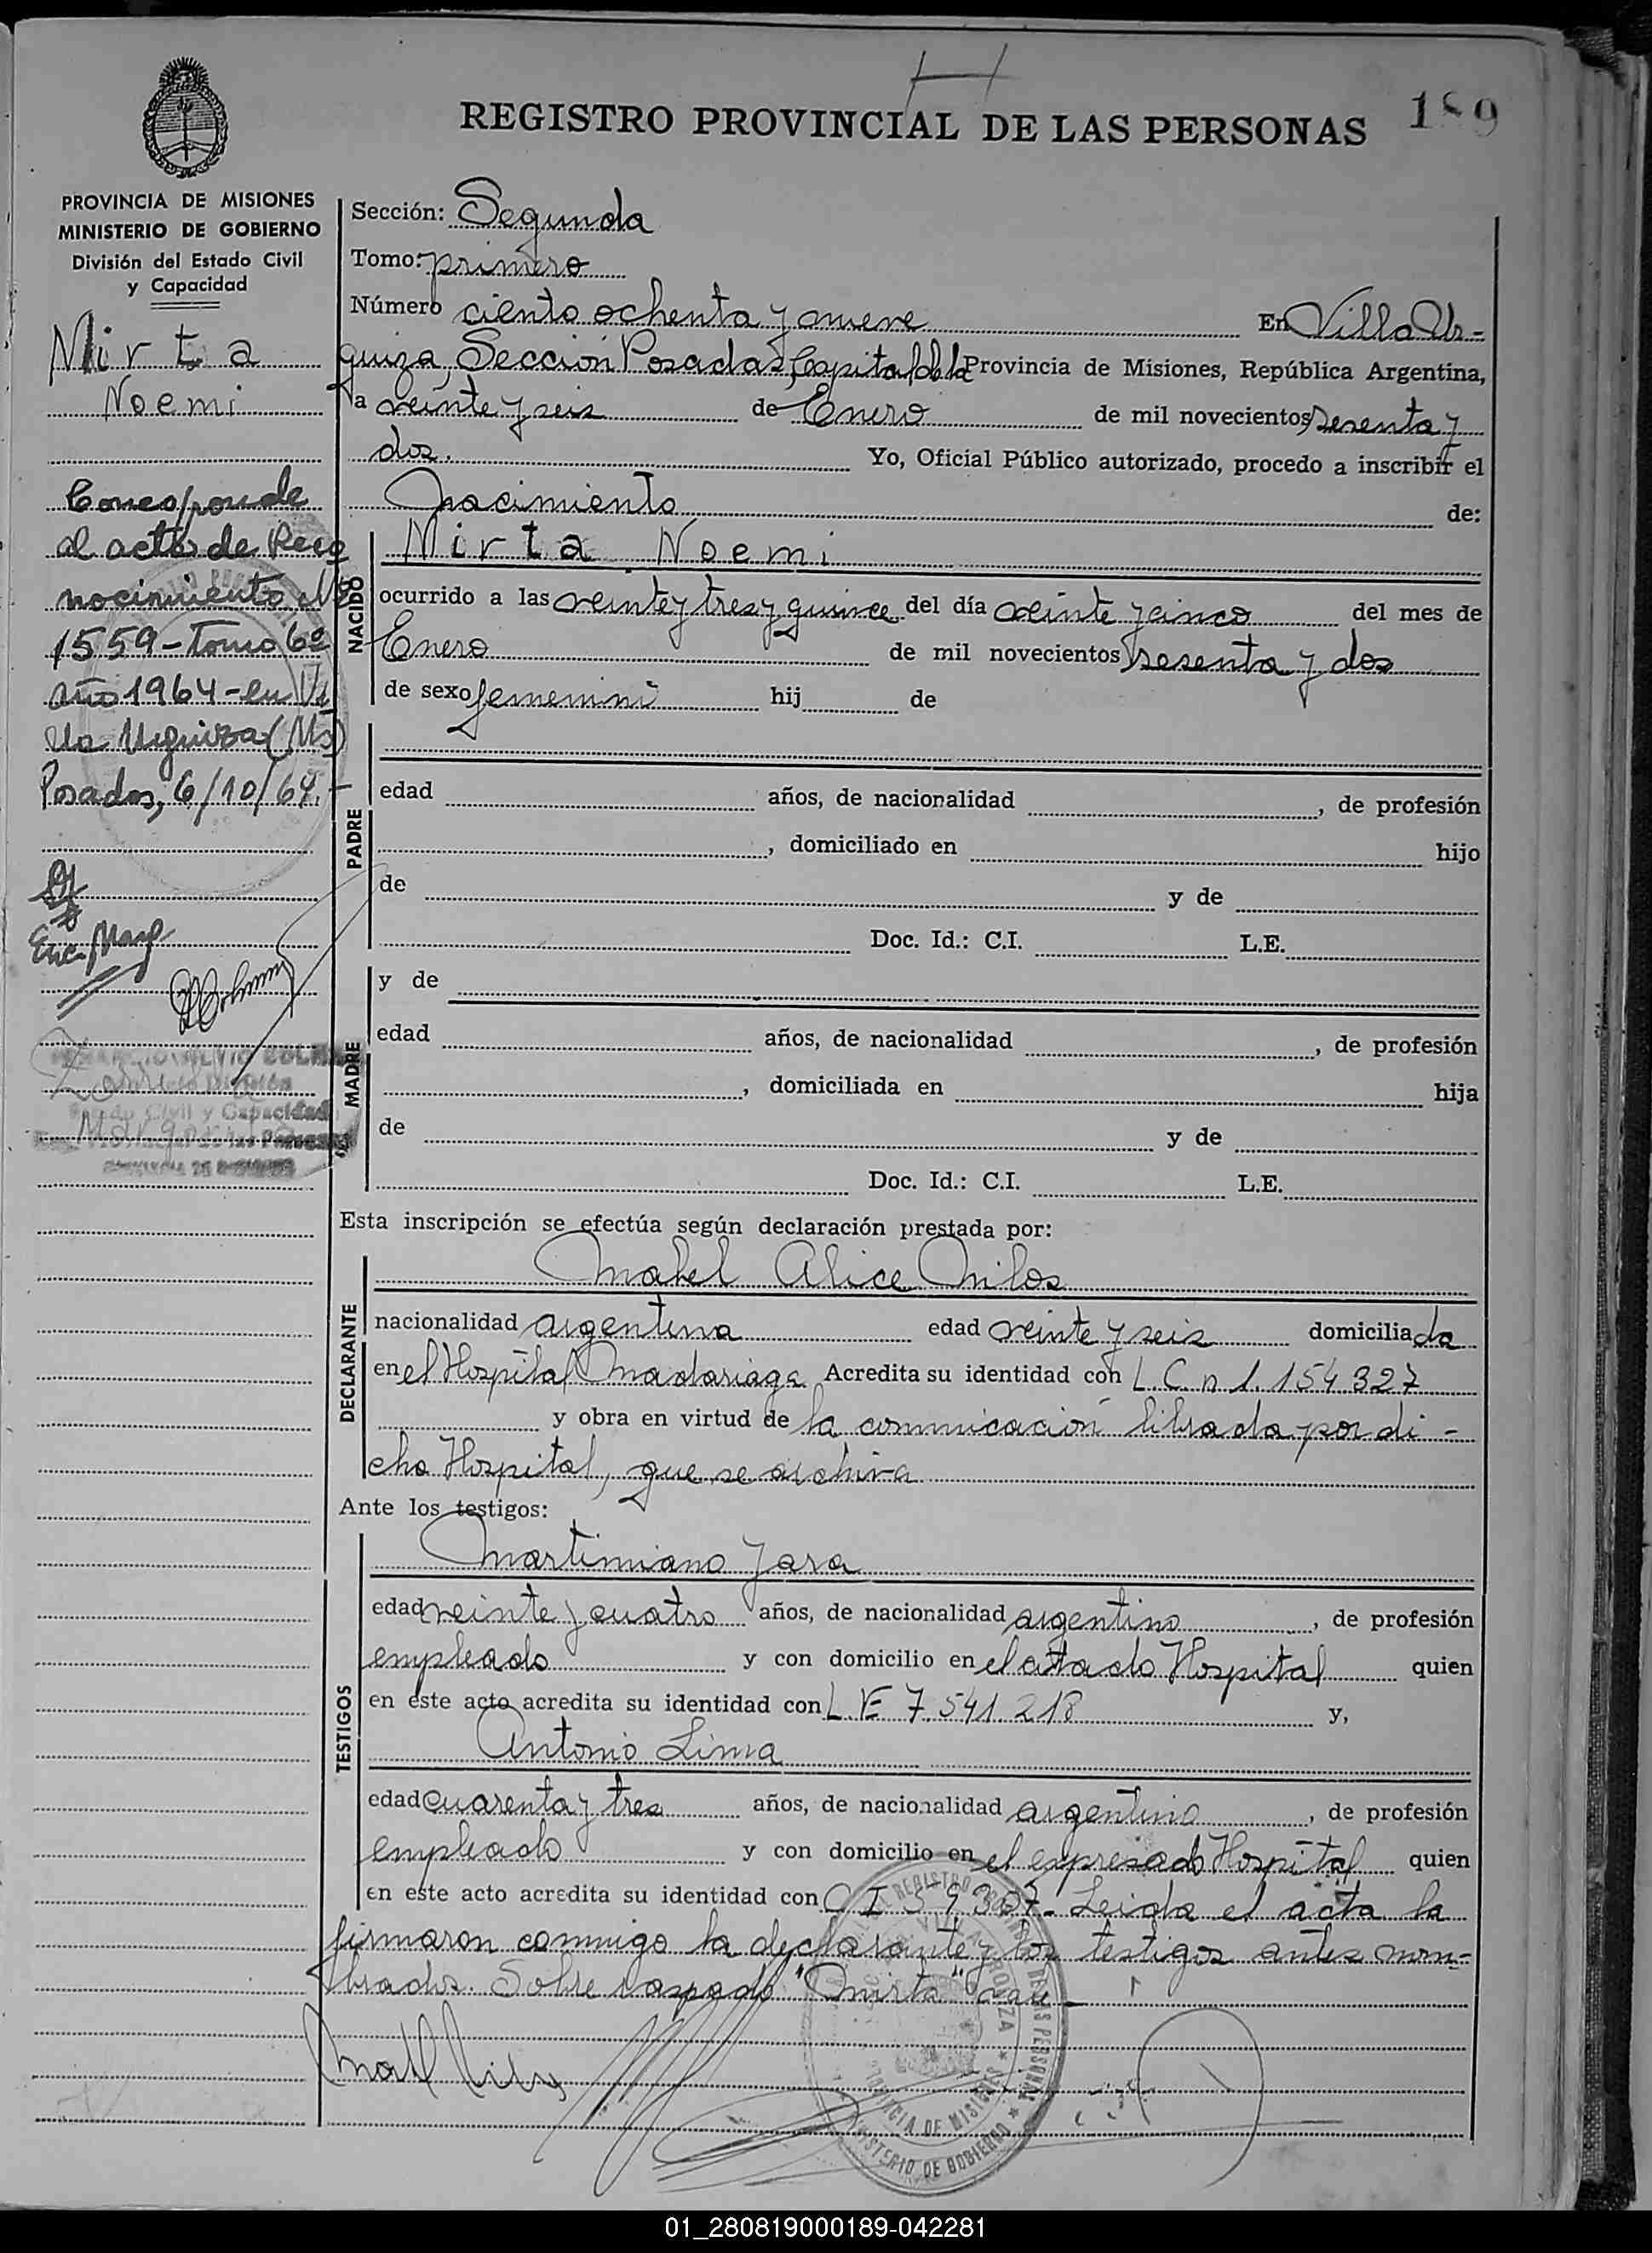 189
REGISTRO PROVINCIAL DE LAS PERSONAS
PROVINCIA DE MISIONES
MINISTERIO DE GOBIERNO
División del Estado Civil
y Capacidad
Mirta
Noemi
Corresponde
al acta de Reco
nocimiento Nº
1559-Tomo 6º
año 1964-en Vi
lla Urquiza (Ms)
Posadas, 6/10/64.
Sección: Segunda
Tomo: primero
Número ciento ochenta y nueve En Villa Ur-
quiza, Sección Posadas, Capital de la Provincia de Misiones, República Argentina,
a veinte y seis de Enero de mil novecientos sesenta y
dos. Yo, Oficial Público autorizado, procedo a inscribir el
nacimiento de:
NACIDO
Mirta Noemi
ocurrido a las veinte y tres y quince del día veinte y cinco del mes de
Enero de mil novecientos sesenta y dos
de sexo femenino hij de
PADRE
edad años, de nacionalidad , de profesión
, domiciliado en hijo
de y de
Doc. Id.: C.I. L.E.
MADRE
y de
edad años, de nacionalidad , de profesión
, domiciliada en hija
de y de
Doc. Id.: C.I. L.E.
Esta inscripción se efectúa según declaración prestada por:
DECLARANTE
Mabel Alice Milos
nacionalidad argentina edad veinte y seis domiciliada
en el Hospital Madariaga Acredita su identidad con L.C. n 1.154327
y obra en virtud de la comunicación librada por di-
cho Hospital, que se archiva
Ante los testigos:
TESTIGOS
Martimiano Jara
edad veinte y cuatro años, de nacionalidad argentino, de profesión
empleado y con domicilio en el citado Hospital quien
en este acto acredita su identidad con L.E 7.541.218 y,
Antonio Lima
edad cuarenta y tres años, de nacionalidad argentino, de profesión
empleado y con domicilio en el expresado Hospital quien
en este acto acredita su identidad con C I 59307. Leida el acta la
firmaron conmigo la declarante y los testigos antes nom-
brados. Sobre raspado "Mirta" vale
01_280819000189-042281